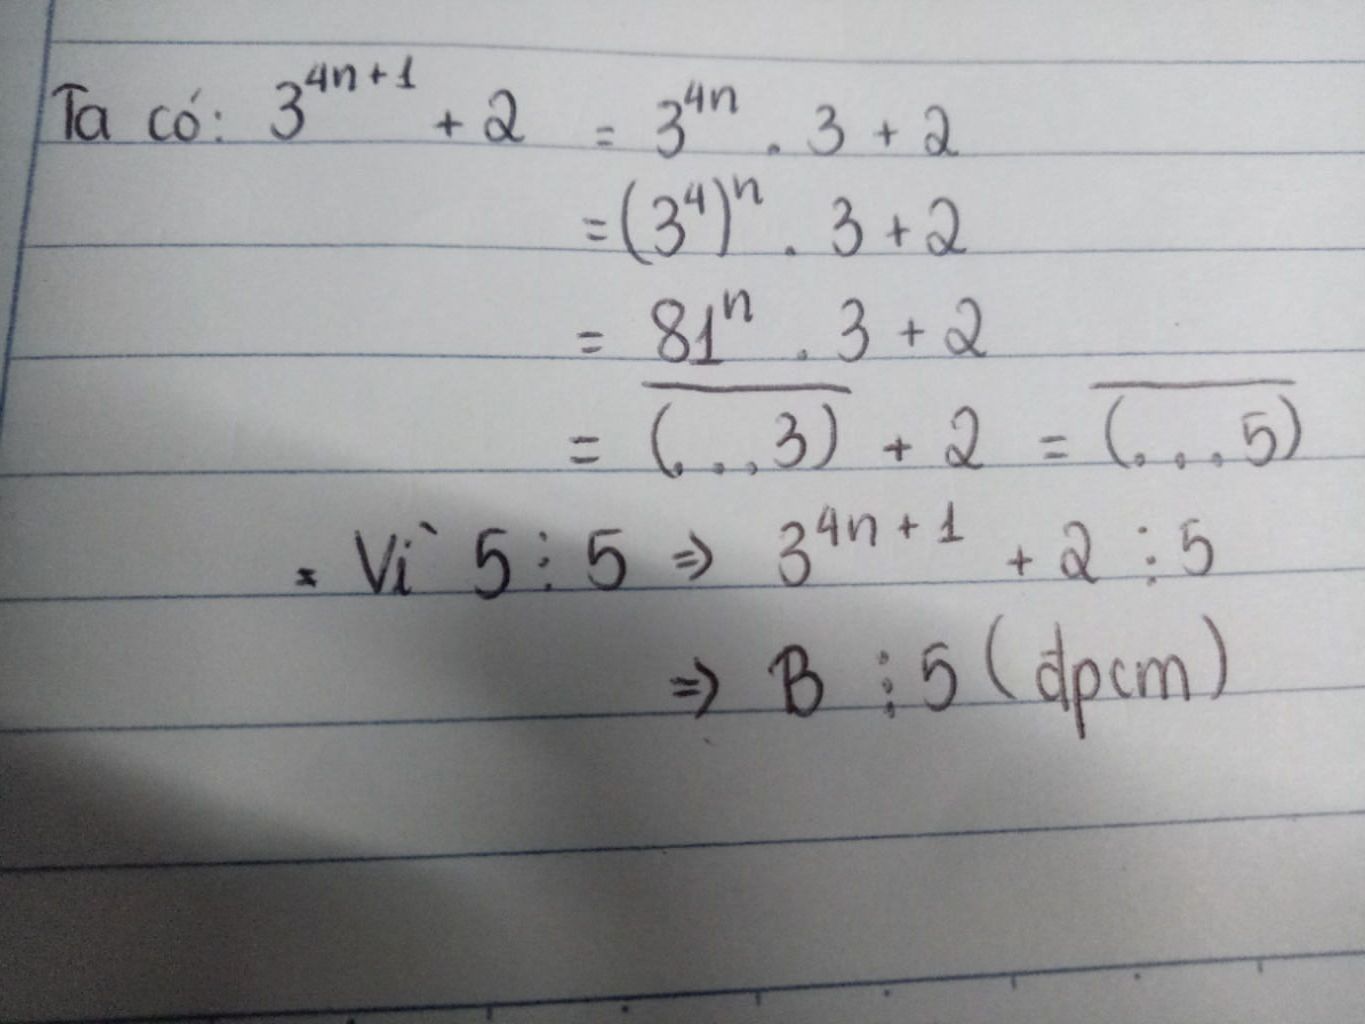 Ta có: 3^{4n+1} + 2 = 3^{4n} . 3 + 2
= (3^4)^n . 3 + 2
= 81^n . 3 + 2
= \overline{(...3)} + 2 = \overline{(...5)}
* Vì 5 ⋮ 5 ⇒ 3^{4n+1} + 2 ⋮ 5
⇒ B ⋮ 5 (dpcm)